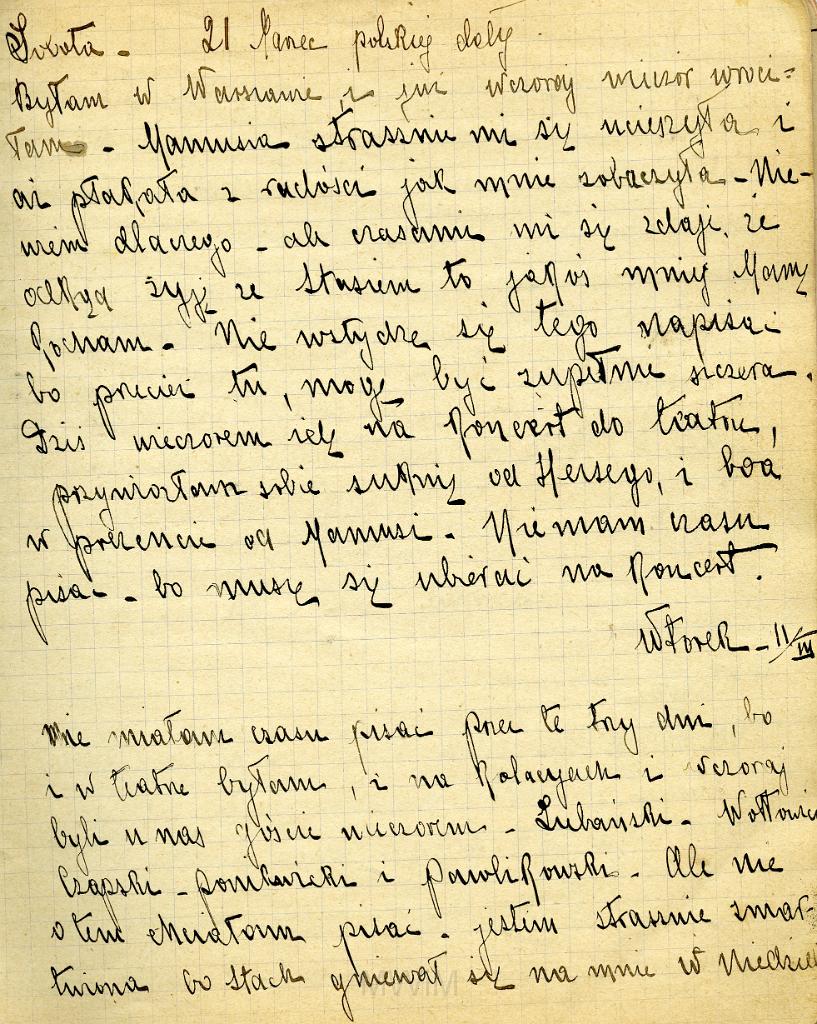 Sobota - 21 Marec polskiej daty
Byłam w Warszawie, i już wczoraj wieczór wróci=
łam - Mamusia strasznie mi się ucieszyła i
aż płakała z radości jak mnie zobaczyła - Nie-
wiem dlaczego - ale czasami mi się zdaji, że
odkąd żyję ze Stasiem to jakoś mniej Mamę
kocham - Nie wstydzę się tego napisać
bo przecież tu, mogę być zupełnie szczera.
Dziś wieczorem idę na koncert do teatru,
przywiozłam sobie suknię od Hersego, i boa
w prezencie od Mamusi - Nie mam czasu
pisać - bo muszę się ubierać na koncert.
Wtorek - 11/III
Nie miałam czasu pisać przez te trzy dni, bo
i w teatrze byłam, i na kolacyach i wczoraj
byli u nas goście wieczorem - Lubański - Wołłowicz
Czapski - Ponikwicki i Pawlikowski - Ale nie
o tem chciałam pisać - jestem strasznie zmar-
twiona bo Stach gniewał się na mnie w Niedziel